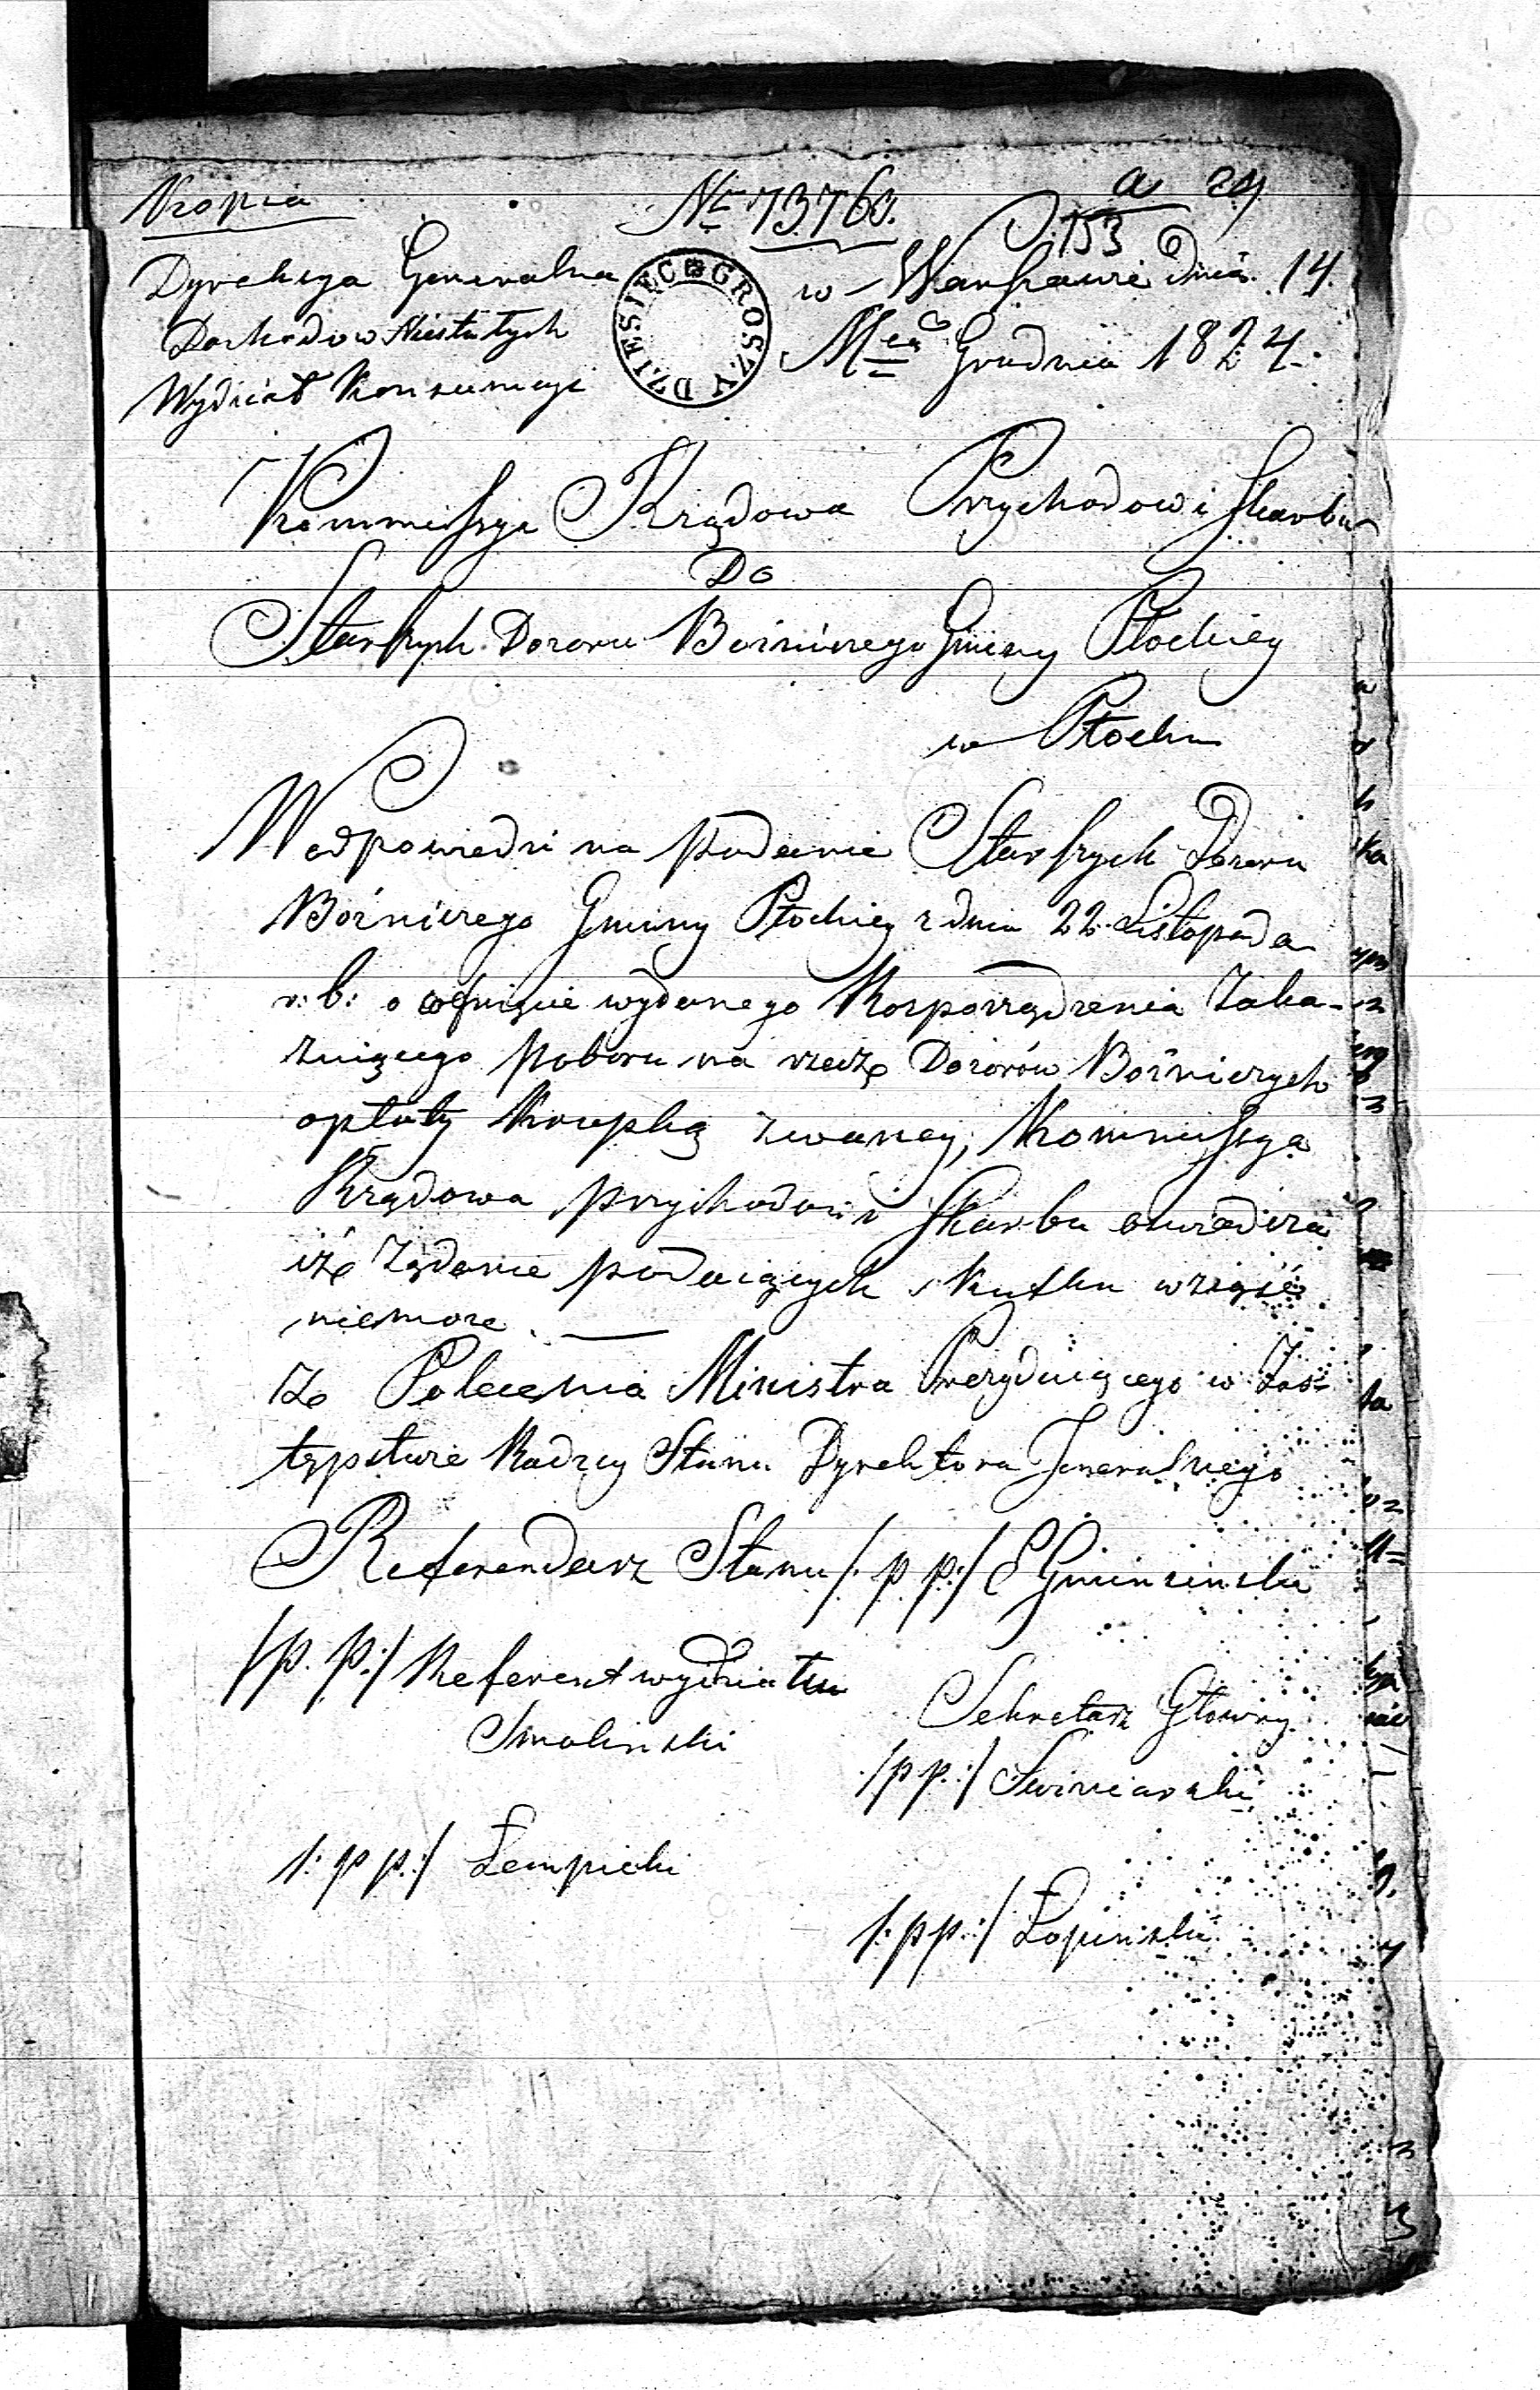 Kopia
Nr 73760.
a 24
153
Dyrekcya Generalna
Dochodow Niestałych
Wydział Konsumcyi
DZIESIĘC GROSZY
w Warszawie dnia 14.
Mca Grudnia 1824.
Kommissya Rządowa Przychodow i Skarbu
Do
Starszych Dozoru Bożniczego Gminy Płockiey
w Płocku
W odpowiedzi na podanie Starszych Dozoru
Bożniczego Gminy Płockiey z dnia 22. Listopada
r: b: o cofnięcie wydanego Rozporządzenia Zaka-
zuiącego poboru na rzecz Dozorów Bożniczych
opłaty Krupką zwaney, Kommissya
Rządowa przychodow i Skarbu oswiadcza
iż żądanie podaiących skutku wziąść
niemoże. —
Z Polecenia Ministra Prezyduiącego w Zas-
tępstwie Radzcy Stanu Dyrektora Jeneralnego
Referendarz Stanu /: p p:/
/p. p:/ Referent wydziału
Smolinski
Sekretarz Głowny
/pp:/ Swiniarski
/: p p:/ Łempicki
/: pp:/ Łopinski